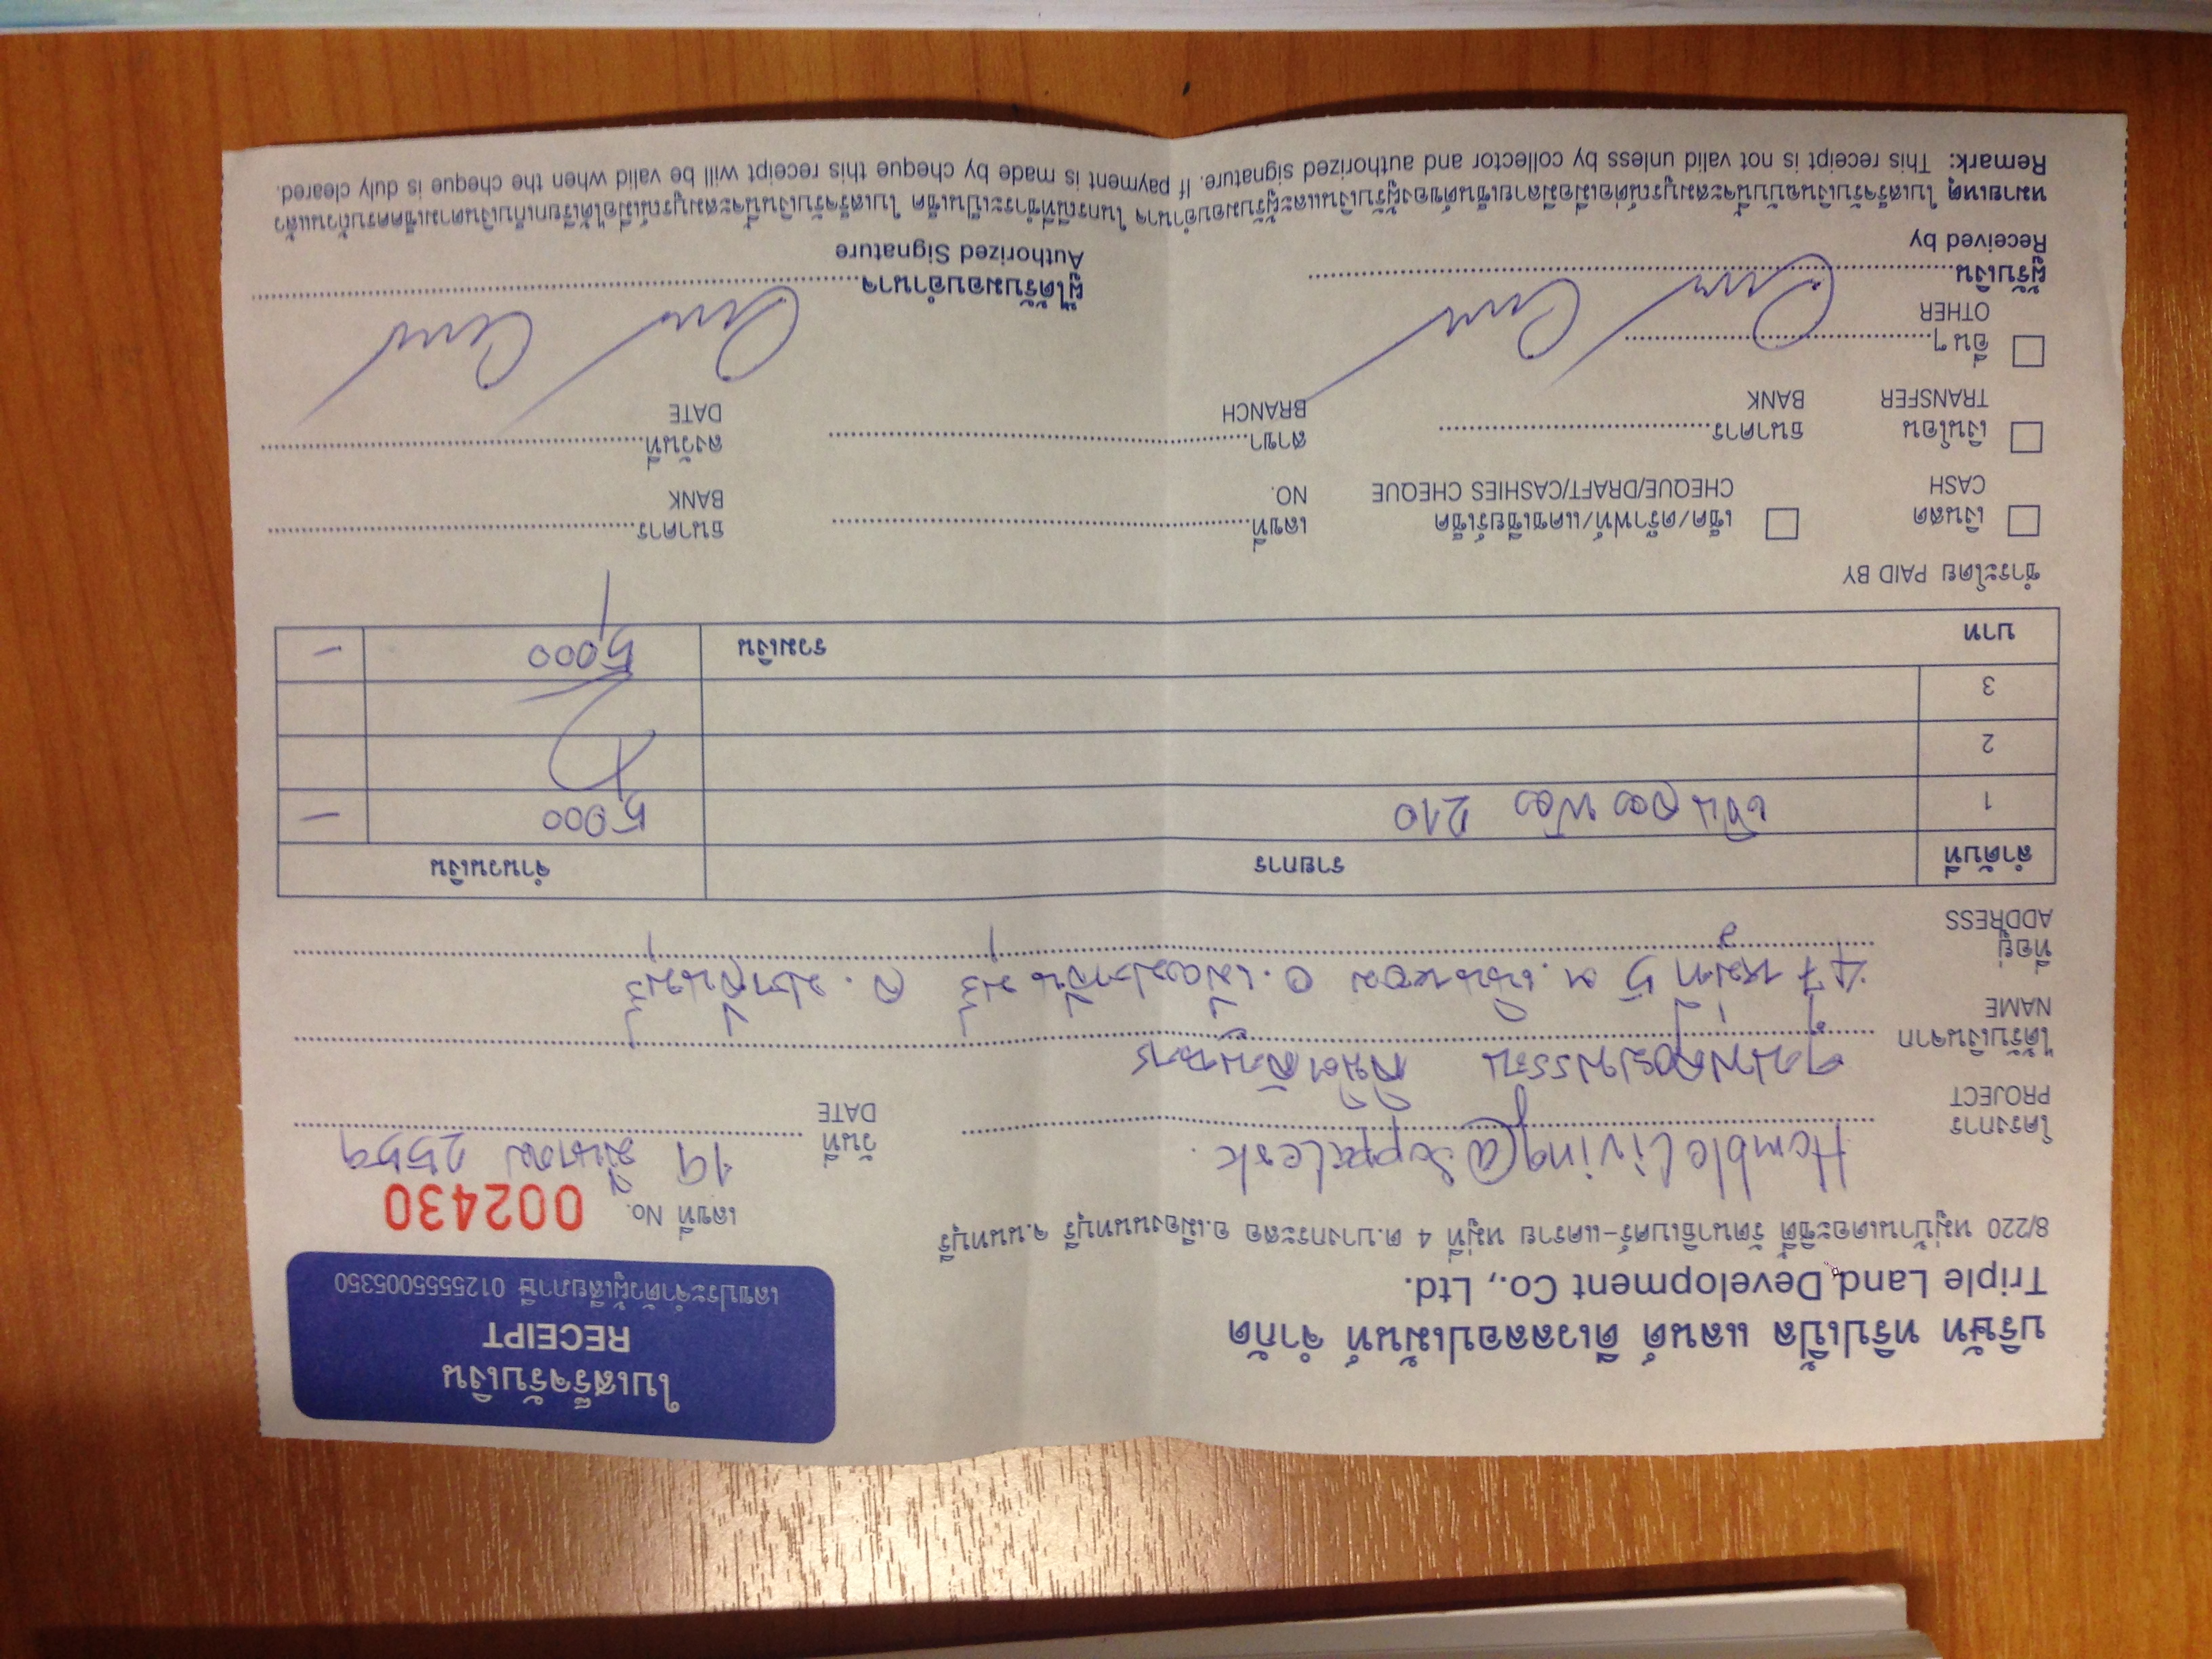 บริษัท ทริปเปิ้ล แลนด์ ดีเวลลอปเม้นท์ จำกัด
Triple Land Development Co., Ltd.
8/220 หมู่บ้านเดอะซิตี้ รัตนาธิเบศร์-แคราย หมู่ที่ 4 ต.บางกระสอ อ.เมืองนนทบุรี จ.นนทบุรี
ใบเสร็จรับเงิน
RECEIPT
เลขประจำตัวผู้เสียภาษี 0125555005350
เลขที่ No. 002430
โครงการ Humble Living@
PROJECT
วันที่ 19 มีนาคม 2559
DATE
ได้รับเงินจาก
NAME
ที่อยู่ 47 หมู่ที่ 5 ต. อ.เมืองปราจีนบุรี จ.ปราจีนบุรี
ADDRESS
ลำดับที่ รายการ จำนวนเงิน
1 เงินจองห้อง 210 5,000 -
2
3
บาท รวมเงิน 5,000 -
ชำระโดย PAID BY
เงินสด เช็ค/ดร๊าฟท์/แคชเชียร์เช็ค เลขที่ ธนาคาร
CASH CHEQUE/DRAFT/CASHIES CHEQUE NO. BANK
เงินโอน ธนาคาร สาขา ลงวันที่
TRANSFER BANK BRANCH DATE
อื่นๆ
OTHER
ผู้รับเงิน ผู้ได้รับมอบอำนาจ
Received by Authorized Signature
หมายเหตุ ใบเสร็จรับเงินฉบับนี้จะสมบูรณ์ต่อเมื่อมีลายเซ็นต์ของผู้รับเงินและผู้รับมอบอำนาจ ในกรณีที่ชำระเป็นเช็ค ใบเสร็จรับเงินนี้จะสมบูรณ์เมื่อได้เรียกเก็บเงินตามเช็คครบถ้วนแล้ว
Remark: This receipt is not valid unless by collector and authorized signature. If payment is made by cheque this receipt will be valid when the cheque is duly cleared.